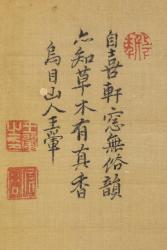 自喜軒窓無俗韻
亦知草木有真香
烏目山人王翬